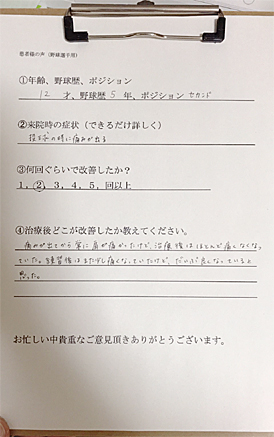 患者様の声(野球選手用)
①年齢、野球歴、ポジション
12 才、野球歴 5 年、ポジション セカンド
②来院時の症状(できるだけ詳しく)
投球の時に痛みが出る
③何回ぐらいで改善したか?
1, 2, 3, 4, 5, 回以上
④治療後どこが改善したか教えてください。
痛みが出てから常に肩が痛かったけど、治療後はほとんど痛くなくなっ
ていた。練習後はまだ少し痛くなっていたけど、だいぶ良くなっていると
思った。
お忙しい中貴重なご意見頂きありがとうございます。